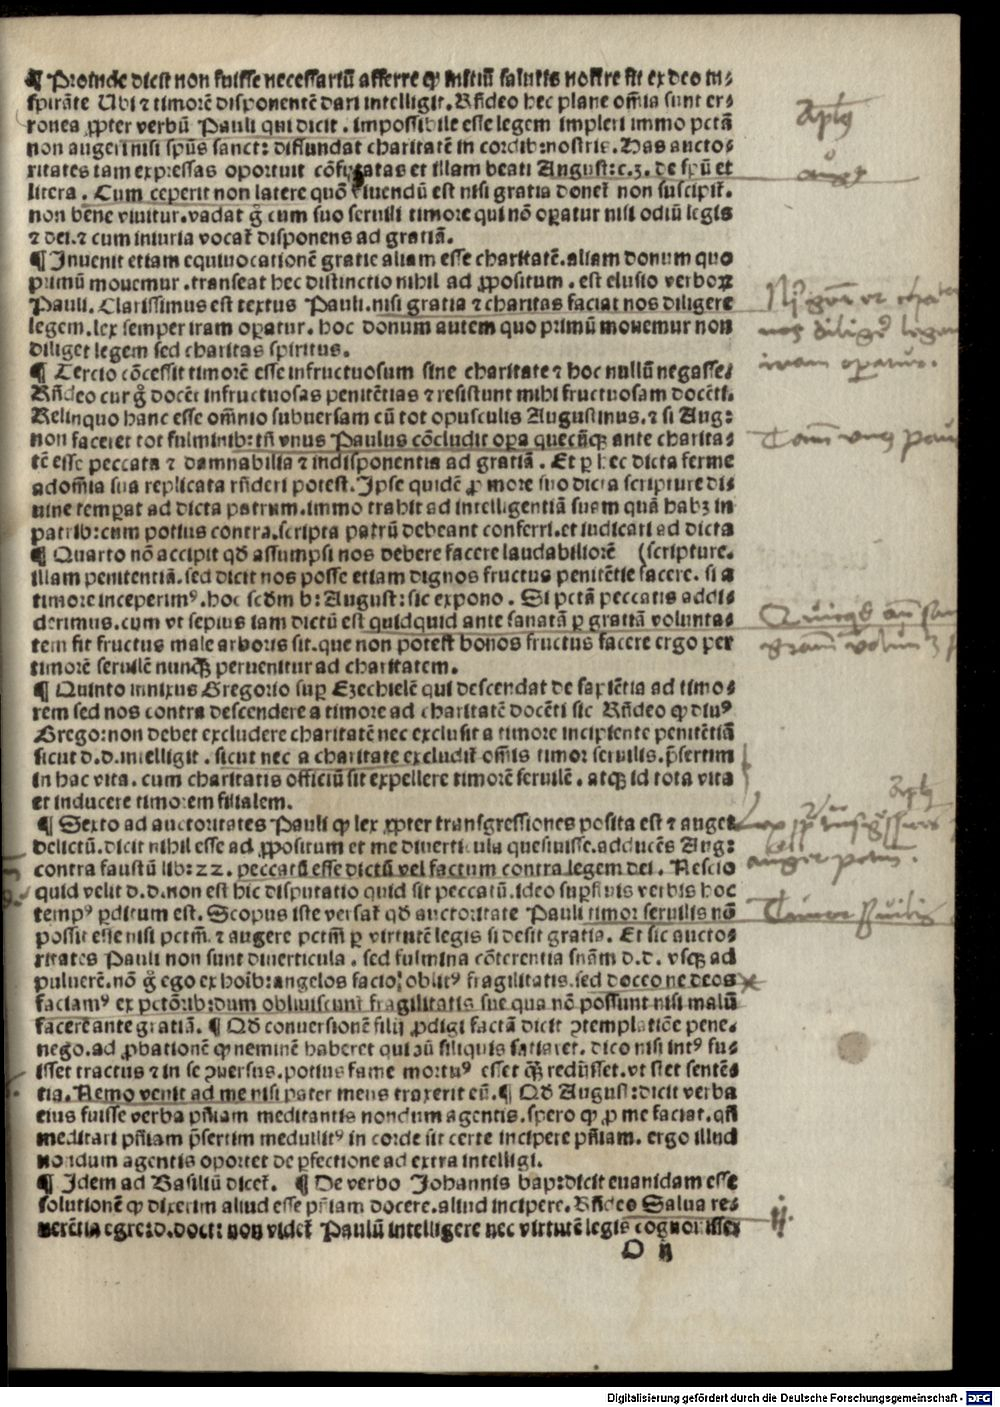 ¶ Proinde dicit non fuisse necessariū afferre ꝙ initiū salutis nostre sit ex deo in⸗
spirāte Ubi ⁊ timorē disponentē dari intelligit. Rñdeo hec plane om̄ia sunt er⸗
ronea ꝓpter verbū Pauli qui dicit. impossibile esse legem impleri immo pctā
non augeri nisi spūs sanct: diffundat charitatē in cordib:nostris. Has aucto⸗
ritates tam expressas oportuit cōfutatas et illam beati August:c.3. de spū et
litera. Cum ceperit non latere quō viuendū est nisi gratia donet̄ non suscipit̄.
non bene viuitur.vadat g̊ cum suo seruili timore qui nō oꝑatur nisi odiū legis
⁊ dei.⁊ cum iniuria vocat̄ disponens ad gratiā.
¶ Inuenit etiam equiuocationē gratie aliam esse charitatē.aliam donum quo
primū mouemur.transeat hec distinctio nihil ad ꝓpositum. est elusio verboꝝ
Pauli. Clarissimus est textus Pauli.nisi gratia ⁊ charitas faciat nos diligere
legem.lex semper iram oꝑatur. hoc donum autem quo primū mouemur non
diliget legem sed charitas spiritus.
¶ Tercio cōcessit timorē esse infructuosum sine charitate ⁊ hoc nullū negasse.
Rñdeo cur g̊ docēt infructuosas penitētias ⁊ resistunt mihi fructuosam docēti.
Relinquo hanc esse om̄nio subuersam cū tot opusculis Augustinus.⁊ si Aug:
non faceret tot fulminib:tñ vnus Paulus cōcludit oꝑa quecūqꝫ ante charita⸗
tē esse peccata ⁊ damnabilia ⁊ indisponentia ad gratiā. Et ꝑ hec dicta ferme
ad om̄ia sua replicata rñderi potest. Ipse quidē ꝓ more suo dicta scripture di⸗
uine temꝑat ad dicta patrum.immo trahit ad intelligentiā suam quā habꝫ in
patrib:cum potius contra.scripta patrū debeant conferri.et iudicari ad dicta
¶ Quarto nō accipit qđ assumpsi nos debere facere laudabiliorē (scripture.
illam penitentiā.sed dicit nos posse etiam dignos fructus penitētie facere. si a
timore inceperimꝰ.hoc scđm b: August: sic expono. Si pctā peccatis addi⸗
derimus.cum vt sepius iam dictū est quidquid ante sanatā ꝑ gratiā volunta⸗
tem fit fructus male arboris sit.que non potest bonos fructus facere ergo per
timorē seruilē nunqꝫ peruenitur ad charitatem.
¶ Quinto innixus Gregorio suꝑ Ezechielē qui descendat de sapiētia ad timo⸗
rem sed nos contra descendere a timore ad charitatē docēti sic Rñdeo ꝙ diuꝰ
Grego:non debet excludere charitatē nec exclusit a timore incipiente penitētiā
sicut d.d.intelligit. sicut nec a charitate excludit̄ om̄is timor seruilis.p̄sertim
in hac vita. cum charitatis officiū sit expellere timorē seruilē. atqꝫ id tota vita
et inducere timorem filialem.
¶ Sexto ad auctoritates Pauli ꝙ lex ꝓpter transgressiones posita est ⁊ auget
delictū.dicit nihil esse ad ꝓpositum et me diuerticula quesiuisse.adducēs Aug:
contra faustū lib:22. peccatū esse dictū vel factum contra legem dei. Nescio
quid velit d.d.non est hic disputatio quid sit peccatū.ideo suꝑfluis verbis hoc
tempꝰ ꝑditum est. Scopus iste versat̄ qđ auctoritate Pauli timor seruilis nō
possit esse nisi pctm̄. ⁊ augere pctm̄ ꝑ virtutē legis si desit gratia. Et sic aucto⸗
ritates Pauli non sunt diuerticula. sed fulmina cōterentia snīam d.d. vsqꝫ ad
puluerē.nō g̊ ego ex hoīb:angelos facio: oblitꝰ fragilitatis.sed doceo ne deos
faciamꝰ ex pctōrib:dum obliuiscunt̄ fragilitatis sue qua nō possunt nisi malū
facere ante gratiā. ¶ Qđ conuersionē filij ꝓdigi factā dicit ɔtemplatiōe pene.
nego.ad ꝓbationē ꝙ neminē haberet qui eū siliquis satiaret. dico nisi intꝰ fu⸗
isset tractus ⁊ in se ɔuersus.potius fame mortuꝰ esset qꝫ redijsset.vt stet sentē⸗
tia. Nemo venit ad me nisi pater meus traxerit eū.¶ Qđ August:dicit verba
eius fuisse verba pñiam meditantis nondum agentis.spero ꝙ ꝓ me faciat.qñ
meditari pñiam p̄sertim medullitꝰ in corde sit certe incipere pñiam. ergo illud
nondum agentis oportet de ꝑfectione ad extra intelligi.
¶ Idem ad Basiliū dicet̄. ¶ De verbo Johannis bap:dicit euanidam esse
solutionē ꝙ dixerim aliud esse pñiam docere.aliud incipere. Rñdeo Salua re⸗
uerētia egre:d.doct: non videt̄ Paulū intelligere nec virtutē legis cognouisse
O ij
aplꝰ
aug
nos diligere legem
iram operatur.
aplꝰ
Timor seruilis
ij.
Digitalisierung gefördert durch die Deutsche Forschungsgemeinschaft - DFG